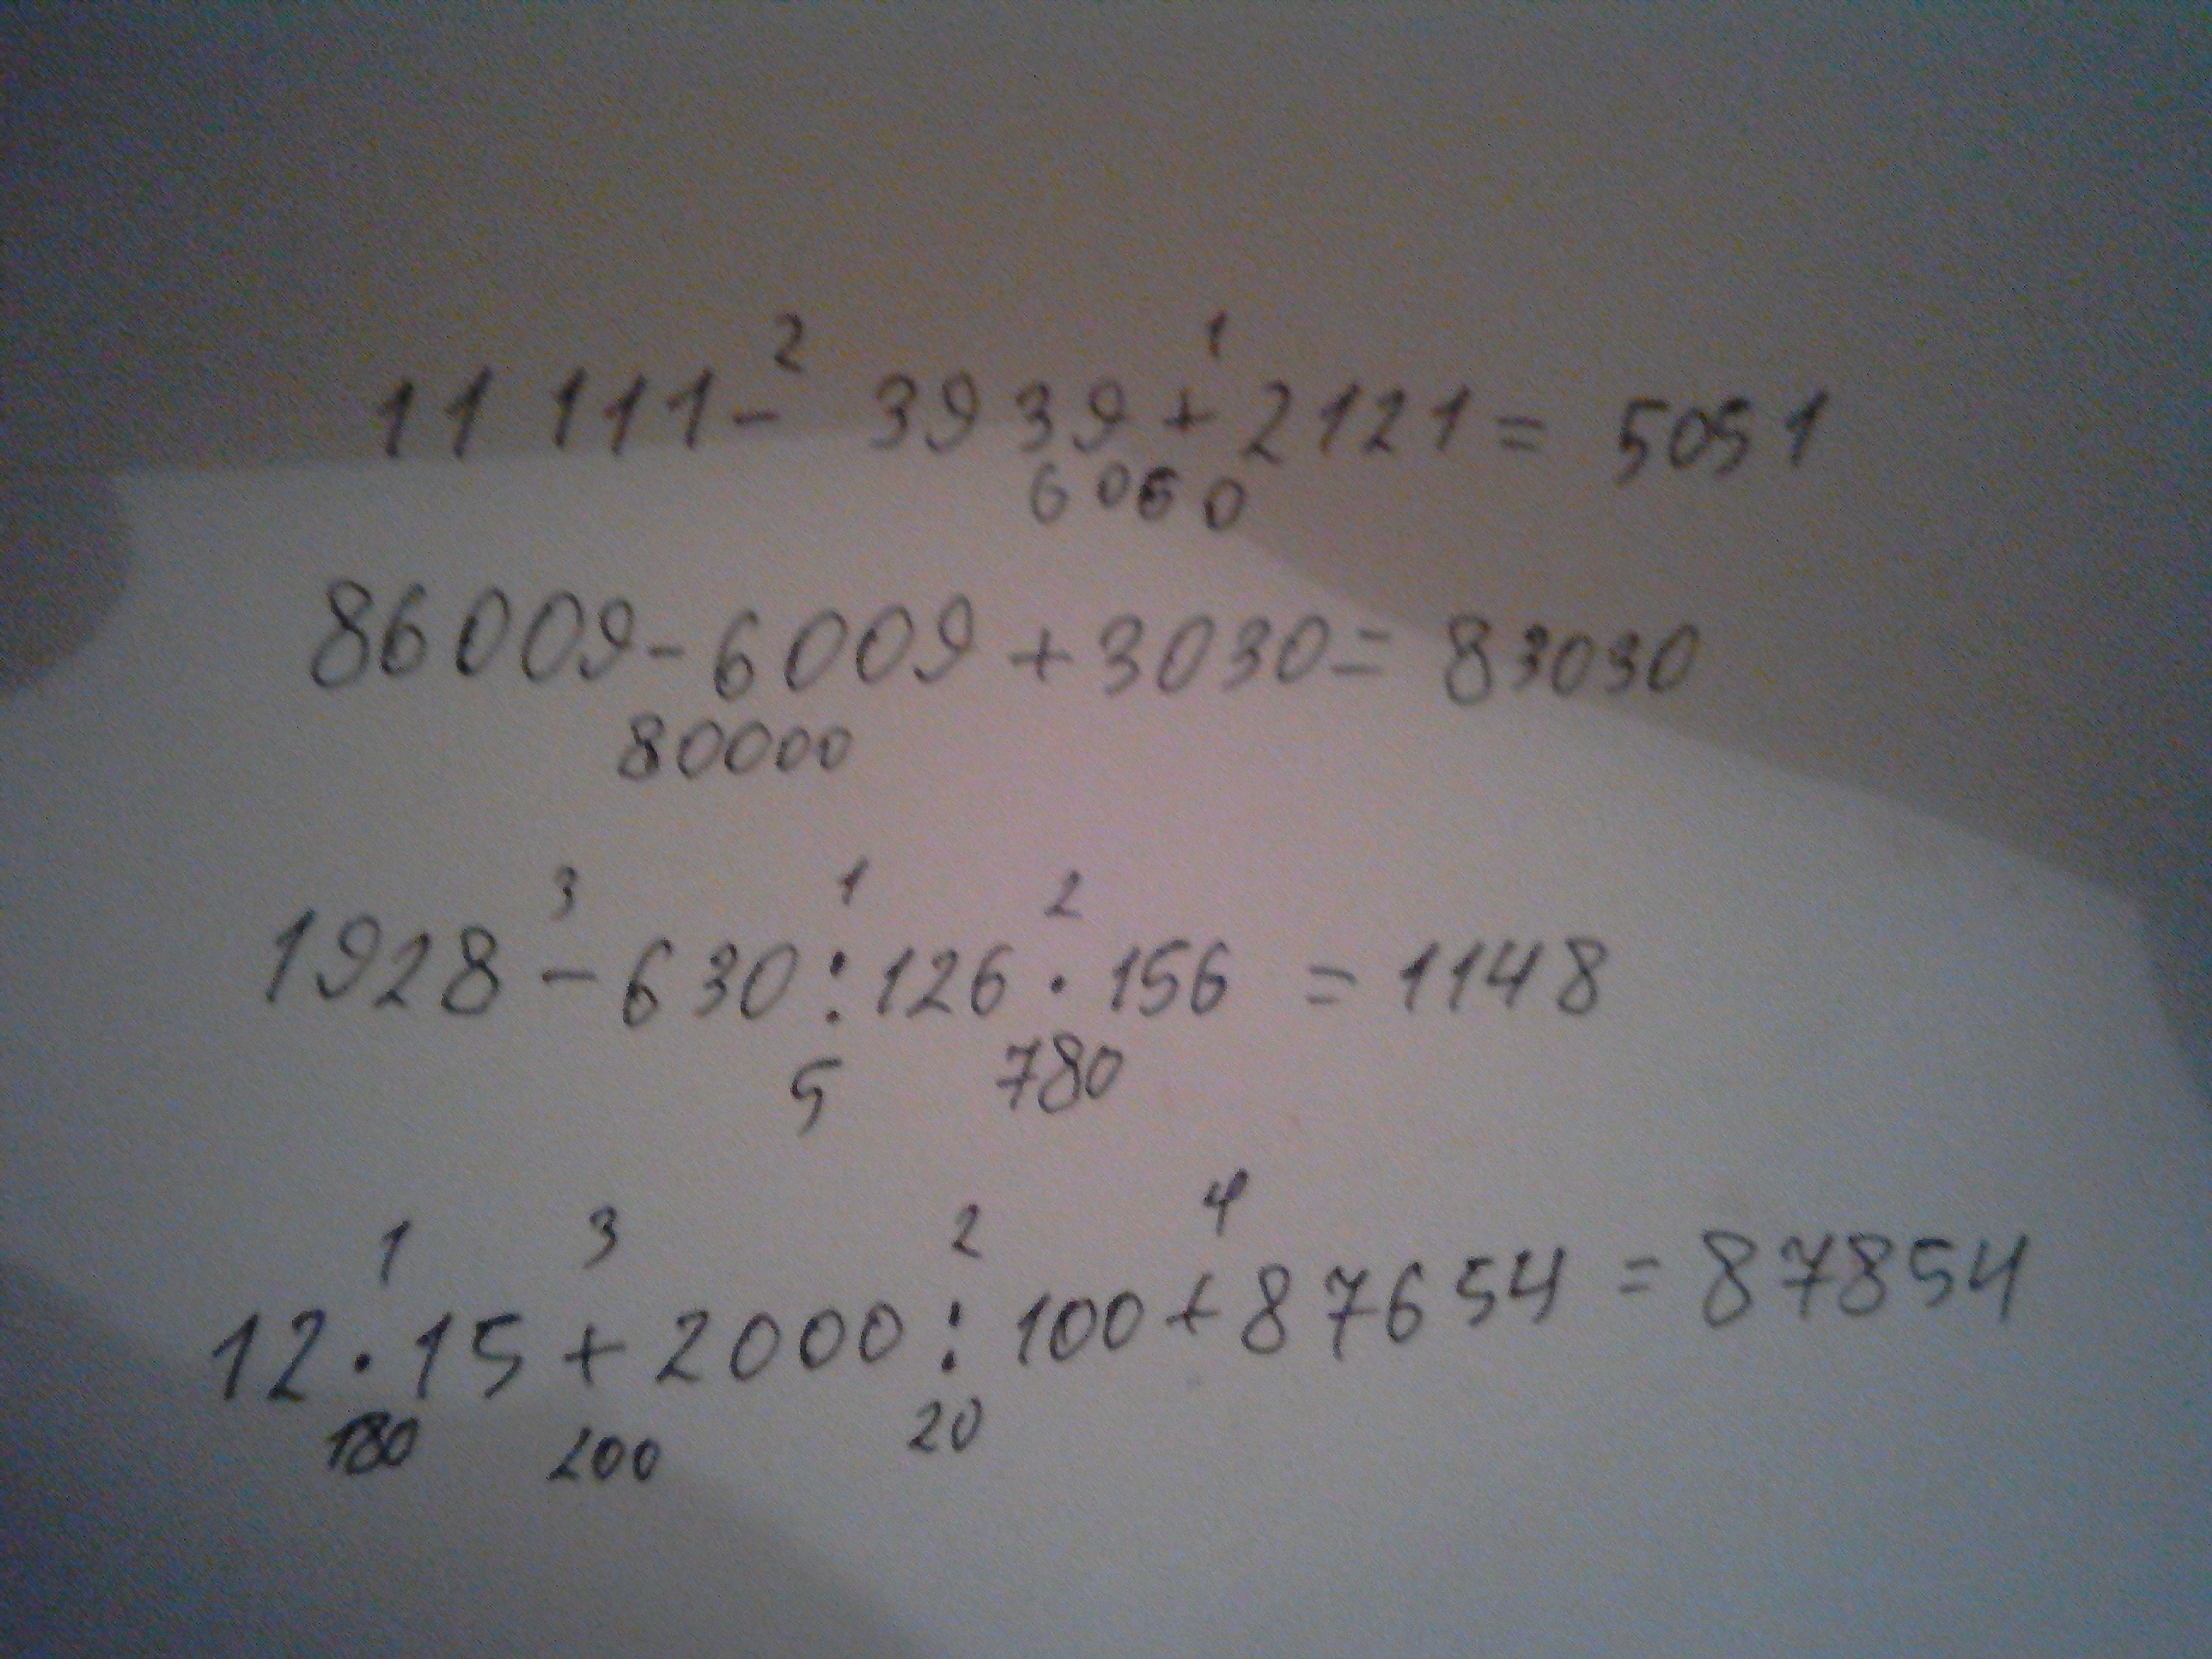 2 1
11 111 - 3939 + 2121 = 5051
6060
86009 - 6009 + 3030 = 83030
80000
3 1 2
1928 - 630 : 126 · 156 = 1148
5 780
1 3 2 4
12 · 15 + 2000 : 100 + 87654 = 87854
180 200 20